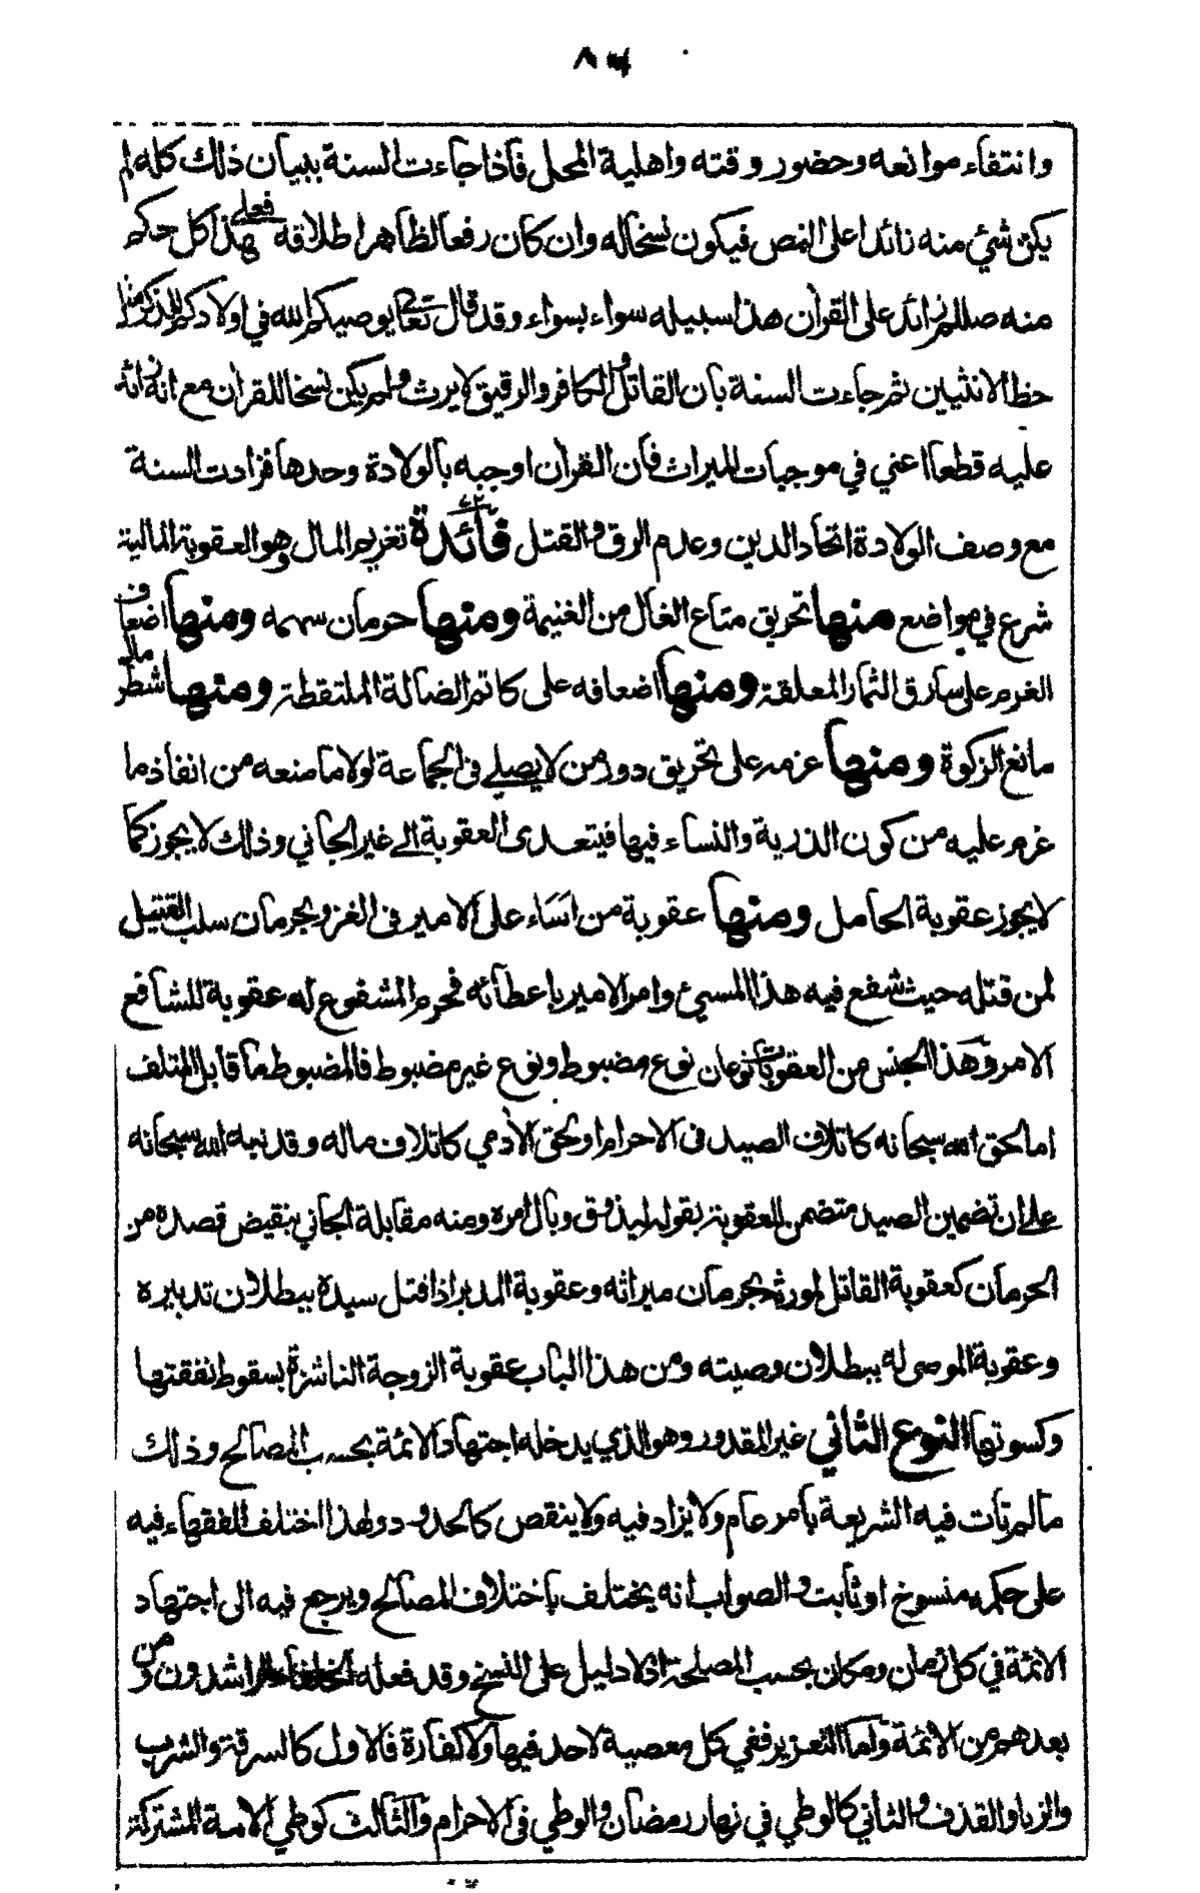 ٨٤
وانتفاء موانعه وحضور وقته واهلية المحل فاذا جاءت السنة ببيان ذلك كله لم
يكن شيئ منه زائدا على النص فيكون نسخا له وان كان رفعا لظاهر اطلاقه فعلى هذا كل حكم
منه صلى للزائد على القرآن هذا سبيله سواء بسواء وقد قال تعا يوصيكم الله في اولادكم للذكر مثل
حظ الانثيين ثم جاءت السنة بان القاتل والكافر والرقيق لا يرث ولم يكن نسخا للقران مع انه زائد
عليه قطعا اعني في موجبات الميراث فان القران اوجبه بالولادة وحدها فزادت السنة
مع وصف الولادة اتحاد الدين وعدم الرق والقتل فائدة تغريم المال وهو العقوبة المالية
شرع في مواضع منها تحريق متاع الغال من الغنيمة ومنها حرمان سهمه ومنها اضعاف
الغرم على سارق الثمار المعلقة ومنها اضعافه على كاتم الضالة الملتقطة ومنها شطر مال
مانع الزكوة ومنها عزمه على تحريق دور من لا يصلي في الجماعة لولا ما منعه من انفاذ ما
عزم عليه من كون الذرية والنساء فيها فيتعدى العقوبة الى غير الجاني وذلك لا يجوز كما
لا يجوز عقوبة الحامل ومنها عقوبة من اساء على الامير في الغزو بحرمان سلب القتيل
لمن قتله حيث شفع فيه هذا المسيئ وامر الامير باعطائه فحرم المشفوع له عقوبة للشافع
الامر وهذا الجنس من العقوبات نوعان نوع مضبوط ونوع غير مضبوط فالمضبوط ما قابل المتلف
اما لحق الله سبحانه كاتلاف الصيد في الاحرام او لحق الآدمي كاتلاف ماله وقد نبه الله سبحانه
على ان تضمين الصيد متضمن للعقوبة بقوله ليذوق وبال امره ومنه مقابلة الجاني بنقيض قصده من
الحرمان كعقوبة القاتل لمورثه بحرمان ميراثه وعقوبة المدبر اذا قتل سيده ببطلان تدبيره
وعقوبة الموصى له ببطلان وصيته ومن هذا الباب عقوبة الزوجة الناشزة بسقوط نفقتها
وكسوتها النوع الثاني غير المقدور وهو الذي يدخله اجتهاد الائمة بحسب المصالح وذلك
ما لم تات فيه الشريعة بامر عام ولا يزاد فيه ولا ينقص كالحدود ولهذا اختلف الفقهاء فيه
على حكمه منسوخ او ثابت والصواب انه يختلف باختلاف المصالح ويرجع فيه الى اجتهاد
الائمة في كل زمان ومكان بحسب المصلحة اذ لا دليل على النسخ وقد فعله الخلفاء الراشدون ومن
بعدهم من الائمة واما التعزير ففي كل معصية لا حد فيها ولا كفارة فالاول كالسرقة والشرب
والزنا والقذف والثاني كالوطي في نهار رمضان والوطي في الاحرام والثالث كوطي الامة المشتركة